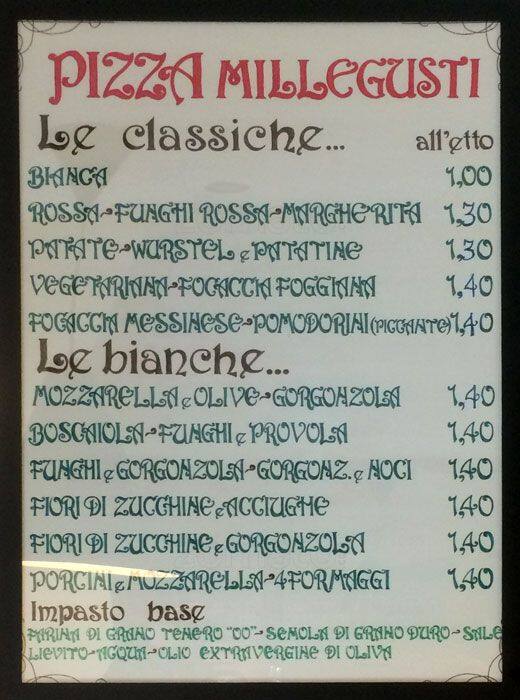 PIZZA MILLEGUSTI
Le classiche... all'etto
BIANCA 1,00
ROSSA-FUNGHI ROSSA-MARGHERITA 1,30
PATATE-WURSTEL e PATATINE 1,30
VEGETARIANA-FOCACCIA FOGGIANA 1,40
FOCACCIA MESSINESE-POMODORINI (PICCANTE) 1,40
Le bianche...
MOZZARELLA e OLIVE-GORGONZOLA 1,40
BOSCAIOLA-FUNGHI e PROVOLA 1,40
FUNGHI e GORGONZOLA-GORGONZ. e NOCI 1,40
FIORI DI ZUCCHINE e ACCIUGHE 1,40
FIORI DI ZUCCHINE e GORGONZOLA 1,40
PORCINI e MOZZARELLA-4 FORMAGGI 1,40
Impasto base
FARINA DI GRANO TENERO "OO"-SEMOLA DI GRANO DURO-SALE
LIEVITO-ACQUA-OLIO EXTRAVERGINE DI OLIVA